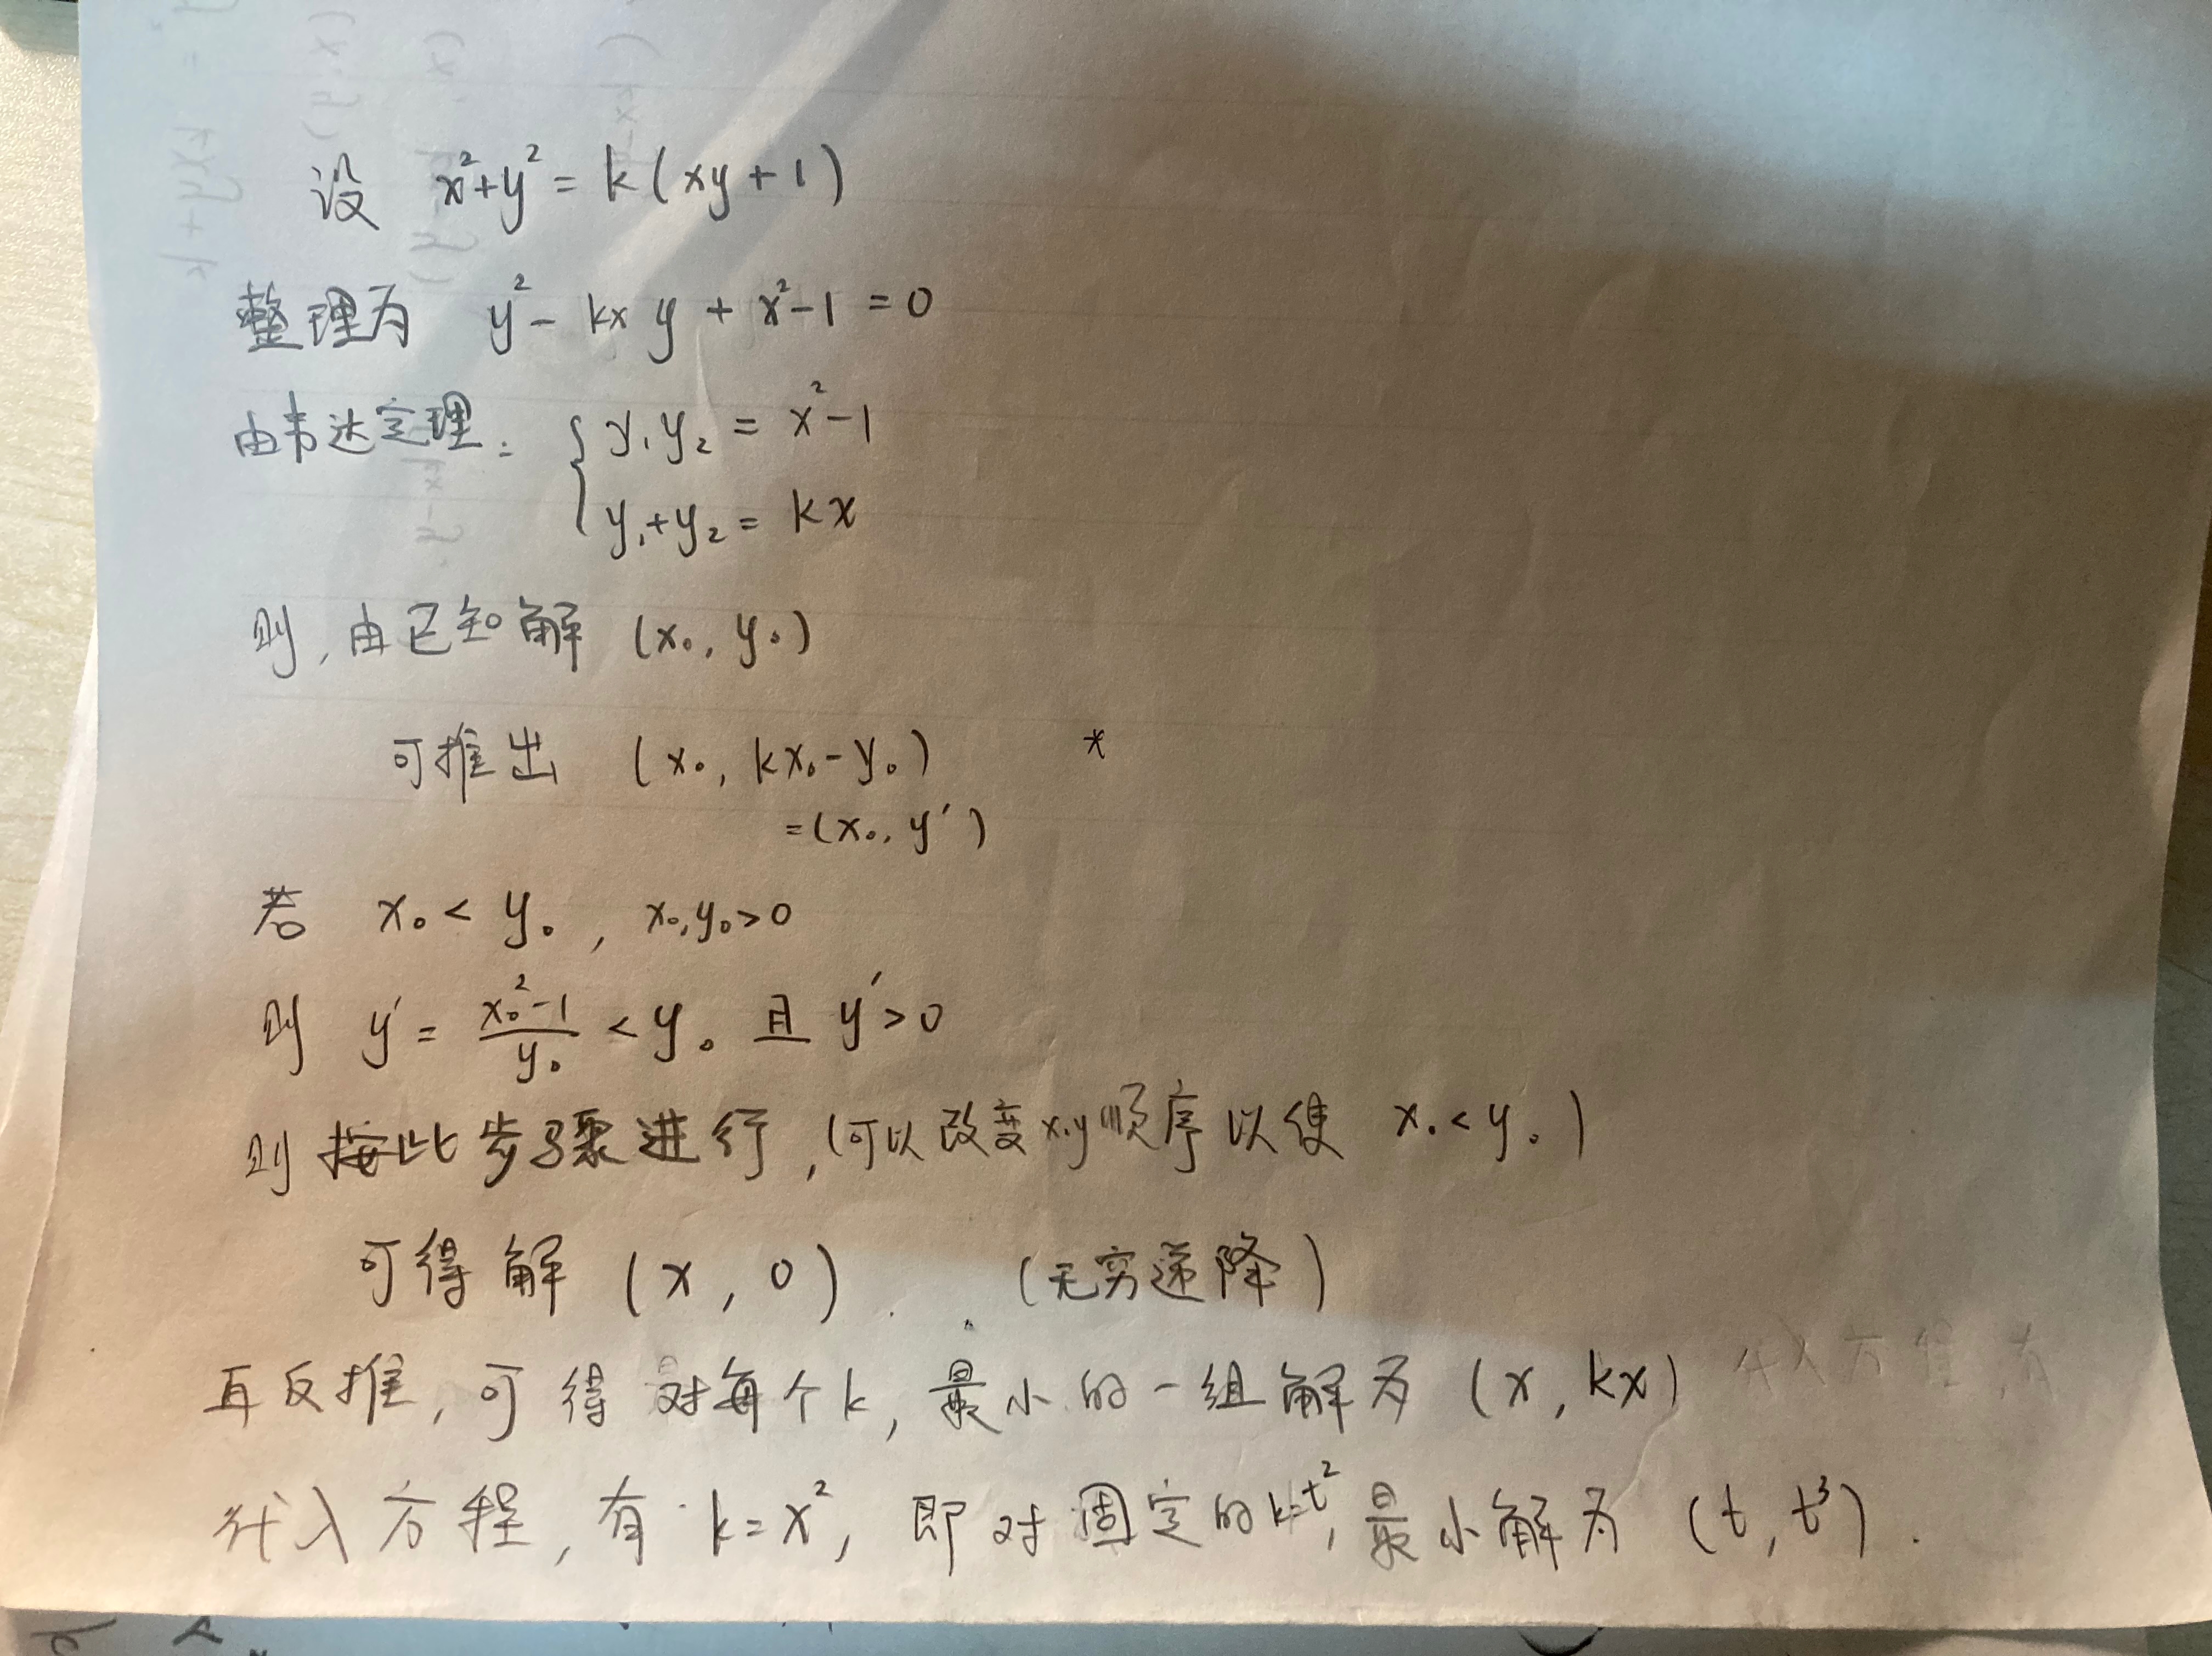 设 x²+y²= k(xy+1)
整理为 y²- kx y + x²-1 =0
由韦达定理: { y₁y₂ = x²-1
y₁+y₂= kx
则,由已知解 (x₀, y₀)
可推出 (x₀, kx₀-y₀) *
=(x₀, y′)
若 x₀< y₀, x₀,y₀>0
则 y′= (x₀²-1)/y₀ < y₀ 且 y′>0
则按此步骤进行,(可以改变x,y顺序以使 x₀<y₀)
可得解 (x, 0). (无穷递降)
再反推,可得对每个k,最小的一组解为 (x, kx) 代入方程,有
代入方程,有 k=x², 即对固定的k=t²,最小解为 (t, t³).